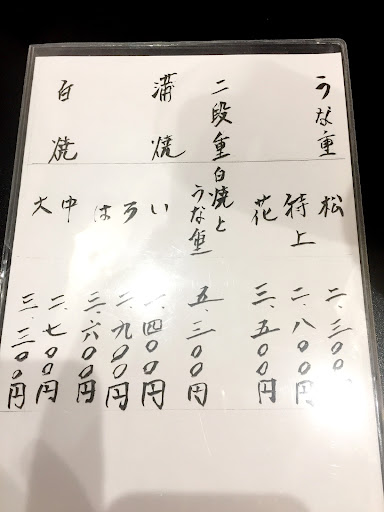 うな重
松 二、三〇〇
特上 二、八〇〇円
花 三、五〇〇円
二段重
白焼と
うな重 五、三〇〇円
蒲焼
い 二、四〇〇円
ろ 二、九〇〇円
は 三、六〇〇円
白焼
中 二、七〇〇円
大 三、三〇〇円